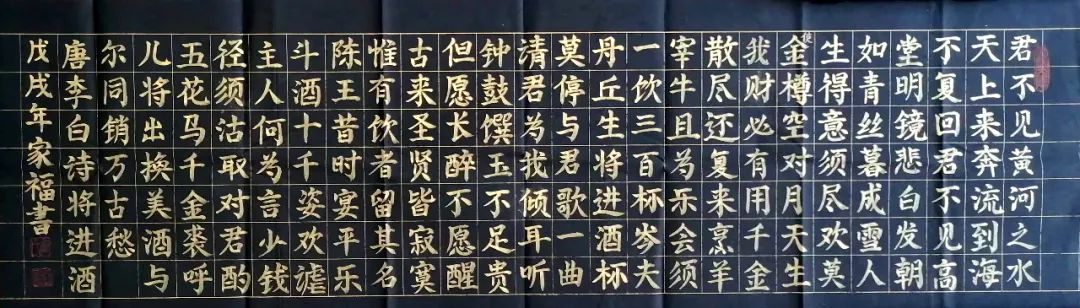 君不见黄河之水
天上来奔流到海
不复回君不见高
堂明镜悲白发朝
如青丝暮成雪人
生得意须尽欢莫
使金樽空对月天生
我财必有用千金
散尽还复来烹羊
宰牛且为乐会须
一饮三百杯岑夫
丹丘生将进酒杯
莫停与君歌一曲
请君为我倾耳听
钟鼓馔玉不足贵
但愿长醉不愿醒
古来圣贤皆寂寞
惟有饮者留其名
陈王昔时宴平乐
斗酒十千姿欢谑
主人何为言少钱
径须沽取对君酌
五花马千金裘呼
儿将出换美酒与
尔同销万古愁
唐李白诗将进酒
戊戌年家福书